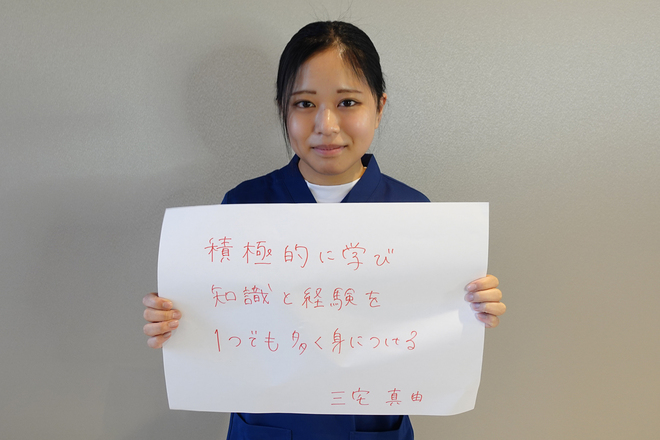 積極的に学び
知識と経験を
1つでも多く身につける
三宅 真由